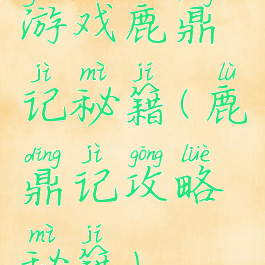 游戏鹿鼎
jì mì jí lù
记秘籍(鹿
dǐng jì gōng lüè
鼎记攻略
mì jí
秘籍)